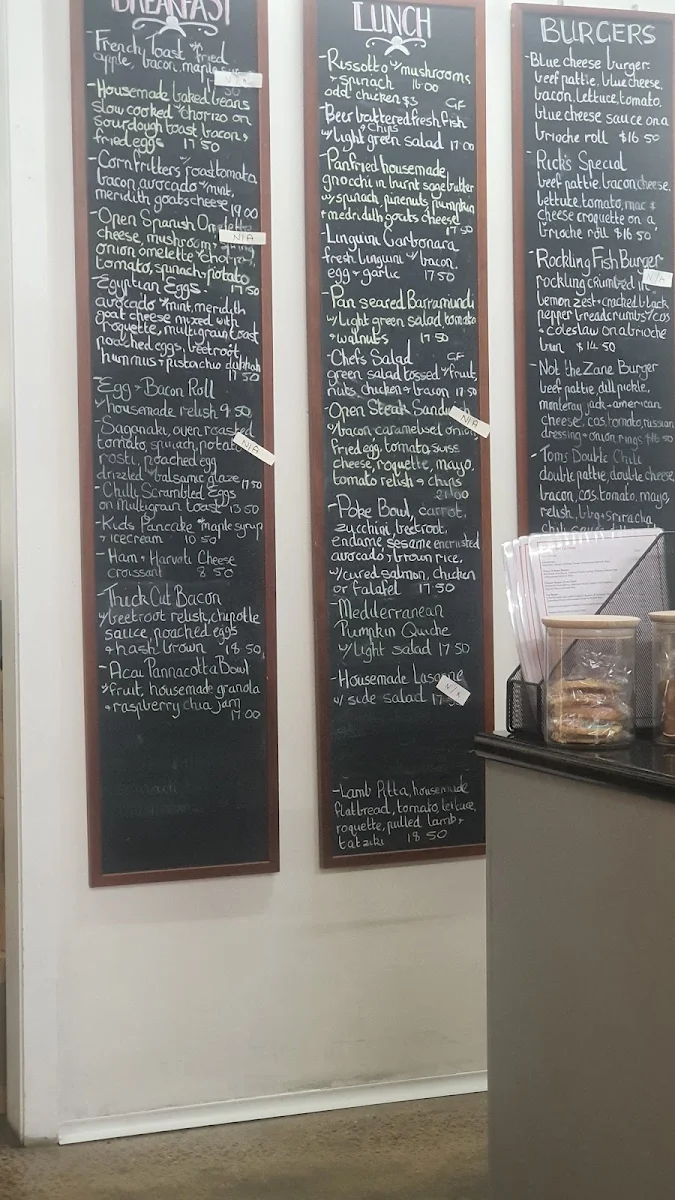 BREAKFAST
-French Toast w fried
apple, bacon, maple
17 50
-Housemade baked beans
slow cooked w chorizo on
sourdough toast bacon +
fried eggs 17 50
-Corn fritters, roast tomato,
bacon, avocado w mint,
meridith goats cheese
19 00
-Open Spanish Omelette
N/A
cheese, mushroom, spring
onion omelette chorizo,
tomato, spinach + potato
17 50
-Egyptian Eggs
avocado w mint, meridith
goat cheese mixed with
roquette, multigrain toast
poached eggs, beetroot,
hummus + pistachio dukkah
17 50
-Egg + Bacon Roll
w housemade relish 9 50
-Saganaki, oven roasted
N/A
tomato, spinach, potato
rosti, poached egg
drizzled w balsamic glaze 17 50
-Chilli Scrambled Eggs
on multigrain toast 13 50
-Kids Pancake w maple syrup
+ icecream 10 50
-Ham + Harvati Cheese
croissant 8 50
-Thick Cut Bacon
w beetroot relish, chipotle
sauce, poached eggs
+ hash brown 18 50
-Acai Pannacotta Bowl
w fruit, housemade granola
+ raspberry chia jam
17.00
LUNCH
-Russotto w mushrooms
+ spinach 16.00
add chicken $3 GF
-Beer battered fresh fish
+ chips
w light green salad 17 00
-Panfried housemade
gnocchi in burnt sage butter
w spinach, pinenuts, pumpkin
+ medridith goats cheese
17 50
-Linguini Carbonara
fresh linguini w bacon,
egg + garlic 17 50
-Pan seared Barramundi
w light green salad, tomato
+ walnuts 17 50
-Chefs Salad GF
green salad tossed w fruit,
nuts, chicken + bacon 17 50
-Open Steak Sandwich
N/A
w bacon, caramelised onion,
fried egg, tomato, swiss
cheese, roquette, mayo,
tomato relish + chips
21.00
-Poke Bowl, carrot,
zucchini, beetroot,
endame, sesame encrusted
avocado + brown rice,
w/cured salmon, chicken
or falafel 17.50
-Mediterranean
Pumpkin Quiche
w/light salad 17 50
-Housemade Lasagne
w/ side salad 17 50
-Lamb Pitta, housemade
flatbread, tomato, lettuce,
roquette, pulled lamb +
tatziki 18 50
BURGERS
-Blue cheese burger:
beef pattie, blue cheese,
bacon, lettuce, tomato,
blue cheese sauce on a
brioche roll $16 50
-Rick's Special
beef pattie, bacon, cheese,
lettuce, tomato, mac +
cheese croquette on a
brioche roll $16.50
-Rockling Fish Burger
rockling crumbed in
N/A
lemon zest + cracked black
pepper breadcrumbs w/cos
+ coleslaw on a brioche
bun $14.50
-Not the Zane Burger
beef pattie, dill pickle,
monteray jack + american
cheese, cos, tomato, russian
dressing + onion rings $16 50
-Toms Double Chilli
double pattie, double cheese,
bacon, cos, tomato, mayo,
relish, bbq + sriracha
chilli sauce